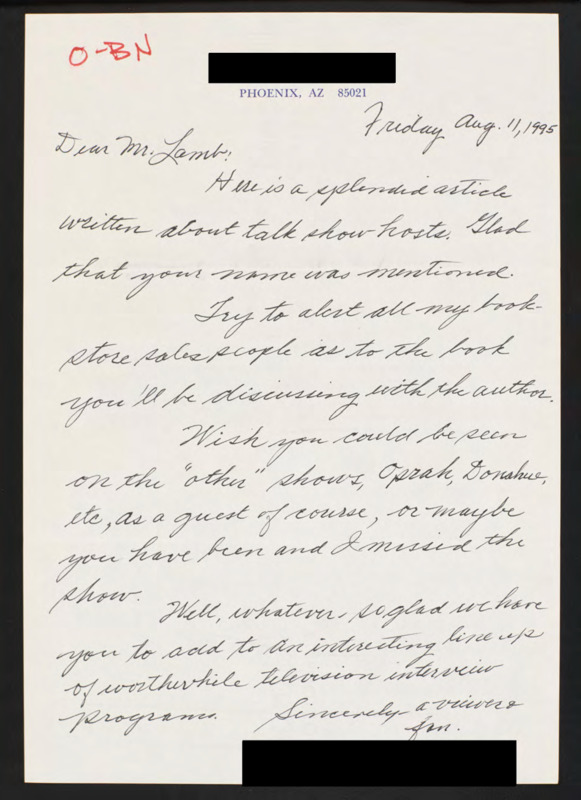 O-BN
PHOENIX, AZ 85021
Friday Aug. 11, 1995
Dear Mr. Lamb:
Here is a splendid article
written about talk show hosts. Glad
that your name was mentioned.
Try to alert all my book-
store sales people as to the book
you'll be discussing with the author.
Wish you could be seen
on the "other" shows, Oprah, Donahue,
etc, as a guest of course, or maybe
you have been and I missed the
show.
Well, whatever - so glad we have
you to add to an interesting line up
of worthwhile television interview
programs. Sincerely - a viewer &
fan.